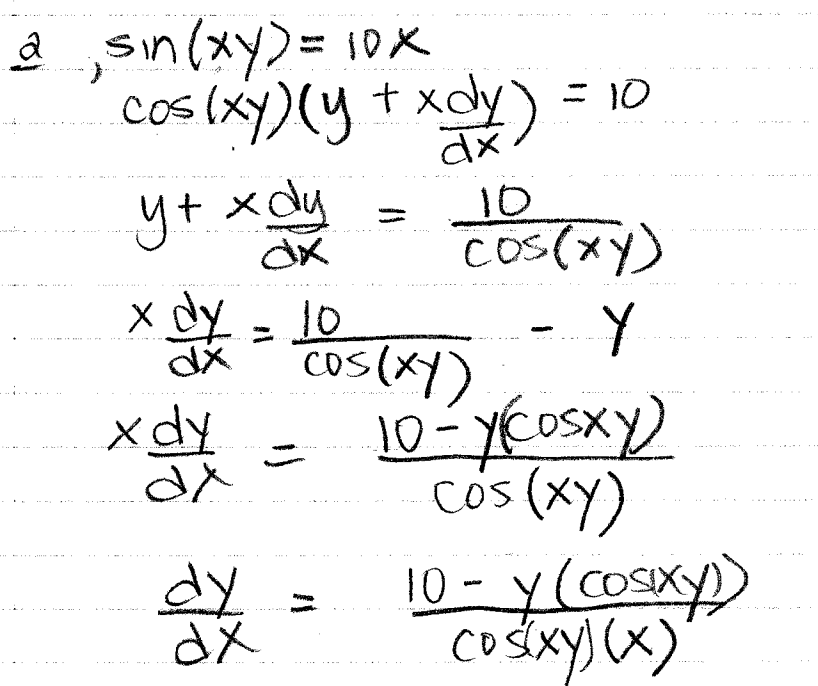 a , sin(xy) = 10x
cos(xy)(y + x dy/dx) = 10
y + x dy/dx = 10/cos(xy)
x dy/dx = 10/cos(xy) - y
x dy/dx = 10 - y(cosxy)/cos(xy)
dy/dx = 10 - y(cos(xy))/cos(xy)(x)